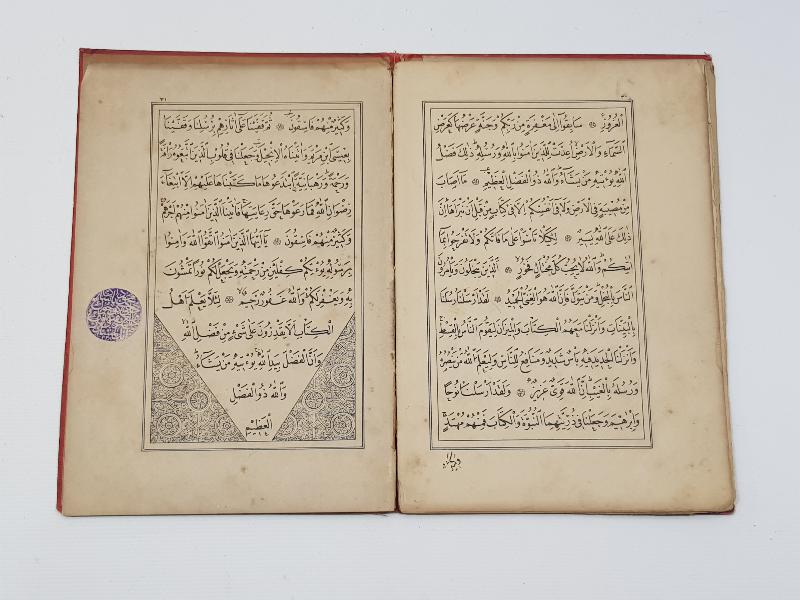 الْغُرُورِ ۞ سَابِقُوا اِلٰى مَغْفِرَةٍ مِنْ رَبِّكُمْ وَجَنَّةٍ عَرْضُهَا كَعَرْضِ
السَّمَاءِ وَالْاَرْضِ اُعِدَّتْ لِلَّذِينَ اٰمَنُوا بِاللّٰهِ وَرُسُلِهِ ذٰلِكَ فَضْلُ
اللّٰهِ يُؤْتِيهِ مَنْ يَشَاءُ وَاللّٰهُ ذُو الْفَضْلِ الْعَظِيمِ ۞ مَا اَصَابَ
مِنْ مُصِيبَةٍ فِي الْاَرْضِ وَلَا فِي اَنْفُسِكُمْ اِلَّا فِي كِتَابٍ مِنْ قَبْلِ اَنْ نَبْرَاَهَا اِنَّ
ذٰلِكَ عَلَى اللّٰهِ يَسِيرٌ ۞ لِكَيْلَا تَاْسَوْا عَلٰى مَا فَاتَكُمْ وَلَا تَفْرَحُوا بِمَا
اٰتٰيكُمْ وَاللّٰهُ لَا يُحِبُّ كُلَّ مُخْتَالٍ فَخُورٍ ۞ اَلَّذِينَ يَبْخَلُونَ وَيَاْمُرُونَ
النَّاسَ بِالْبُخْلِ وَمَنْ يَتَوَلَّ فَاِنَّ اللّٰهَ هُوَ الْغَنِيُّ الْحَمِيدُ ۞ لَقَدْ اَرْسَلْنَا رُسُلَنَا
بِالْبَيِّنَاتِ وَاَنْزَلْنَا مَعَهُمُ الْكِتَابَ وَالْمِيزَانَ لِيَقُومَ النَّاسُ بِالْقِسْطِ
وَاَنْزَلْنَا الْحَدِيدَ فِيهِ بَاْسٌ شَدِيدٌ وَمَنَافِعُ لِلنَّاسِ وَلِيَعْلَمَ اللّٰهُ مَنْ يَنْصُرُهُ
وَرُسُلَهُ بِالْغَيْبِ اِنَّ اللّٰهَ قَوِيٌّ عَزِيزٌ ۞ وَلَقَدْ اَرْسَلْنَا نُوحًا
وَاِبْرٰهِيمَ وَجَعَلْنَا فِي ذُرِّيَّتِهِمَا النُّبُوَّةَ وَالْكِتَابَ فَمِنْهُمْ مُهْتَدٍ
وَكَثِيرٌ مِنْهُمْ فَاسِقُونَ ۞ ثُمَّ قَفَّيْنَا عَلٰى اٰثَارِهِمْ بِرُسُلِنَا وَقَفَّيْنَا
بِعِيسَى ابْنِ مَرْيَمَ وَاٰتَيْنَاهُ الْاِنْجِيلَ وَجَعَلْنَا فِي قُلُوبِ الَّذِينَ اتَّبَعُوهُ رَاْفَةً
وَرَحْمَةً وَرَهْبَانِيَّةً ابْتَدَعُوهَا مَا كَتَبْنَاهَا عَلَيْهِمْ اِلَّا ابْتِغَاءَ
رِضْوَانِ اللّٰهِ فَمَا رَعَوْهَا حَقَّ رِعَايَتِهَا فَاٰتَيْنَا الَّذِينَ اٰمَنُوا مِنْهُمْ اَجْرَهُمْ
وَكَثِيرٌ مِنْهُمْ فَاسِقُونَ ۞ يَا اَيُّهَا الَّذِينَ اٰمَنُوا اتَّقُوا اللّٰهَ وَاٰمِنُوا
بِرَسُولِهِ يُؤْتِكُمْ كِفْلَيْنِ مِنْ رَحْمَتِهِ وَيَجْعَلْ لَكُمْ نُورًا تَمْشُونَ
بِهِ وَيَغْفِرْ لَكُمْ وَاللّٰهُ غَفُورٌ رَحِيمٌ ۞ لِئَلَّا يَعْلَمَ اَهْلُ
الْكِتَابِ اَلَّا يَقْدِرُونَ عَلٰى شَيْءٍ مِنْ فَضْلِ اللّٰهِ
وَاَنَّ الْفَضْلَ بِيَدِ اللّٰهِ يُؤْتِيهِ مَنْ يَشَاءُ
وَاللّٰهُ ذُو الْفَضْلِ
الْعَظِيمِ